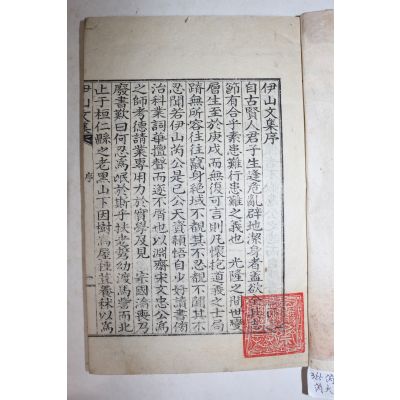 伊山文集序
自古賢人君子生逢危亂辟地潔身者蓋欲全其志
節有合乎素患難行患難之義也 光隆之際世變
層生至於庚戌而無復可言則凡懷抱道義之士局
蹐無所容往往竄身絶域不覩其不忍覩不聞其不
忍聞若伊山芮公是已公天資穎悟自少好讀書傍
治科業詞華擅聲而遂不屑也以淵齋宋文忠公爲
之師考德請業專用力於實學及見 宗國淪喪乃
廢書歎曰何忍爲氓於斯乎扶老携幼渡馬訾而北
止于桓仁縣之老黑山下因樹爲屋種荳養秫以爲
伊山文集
序
一